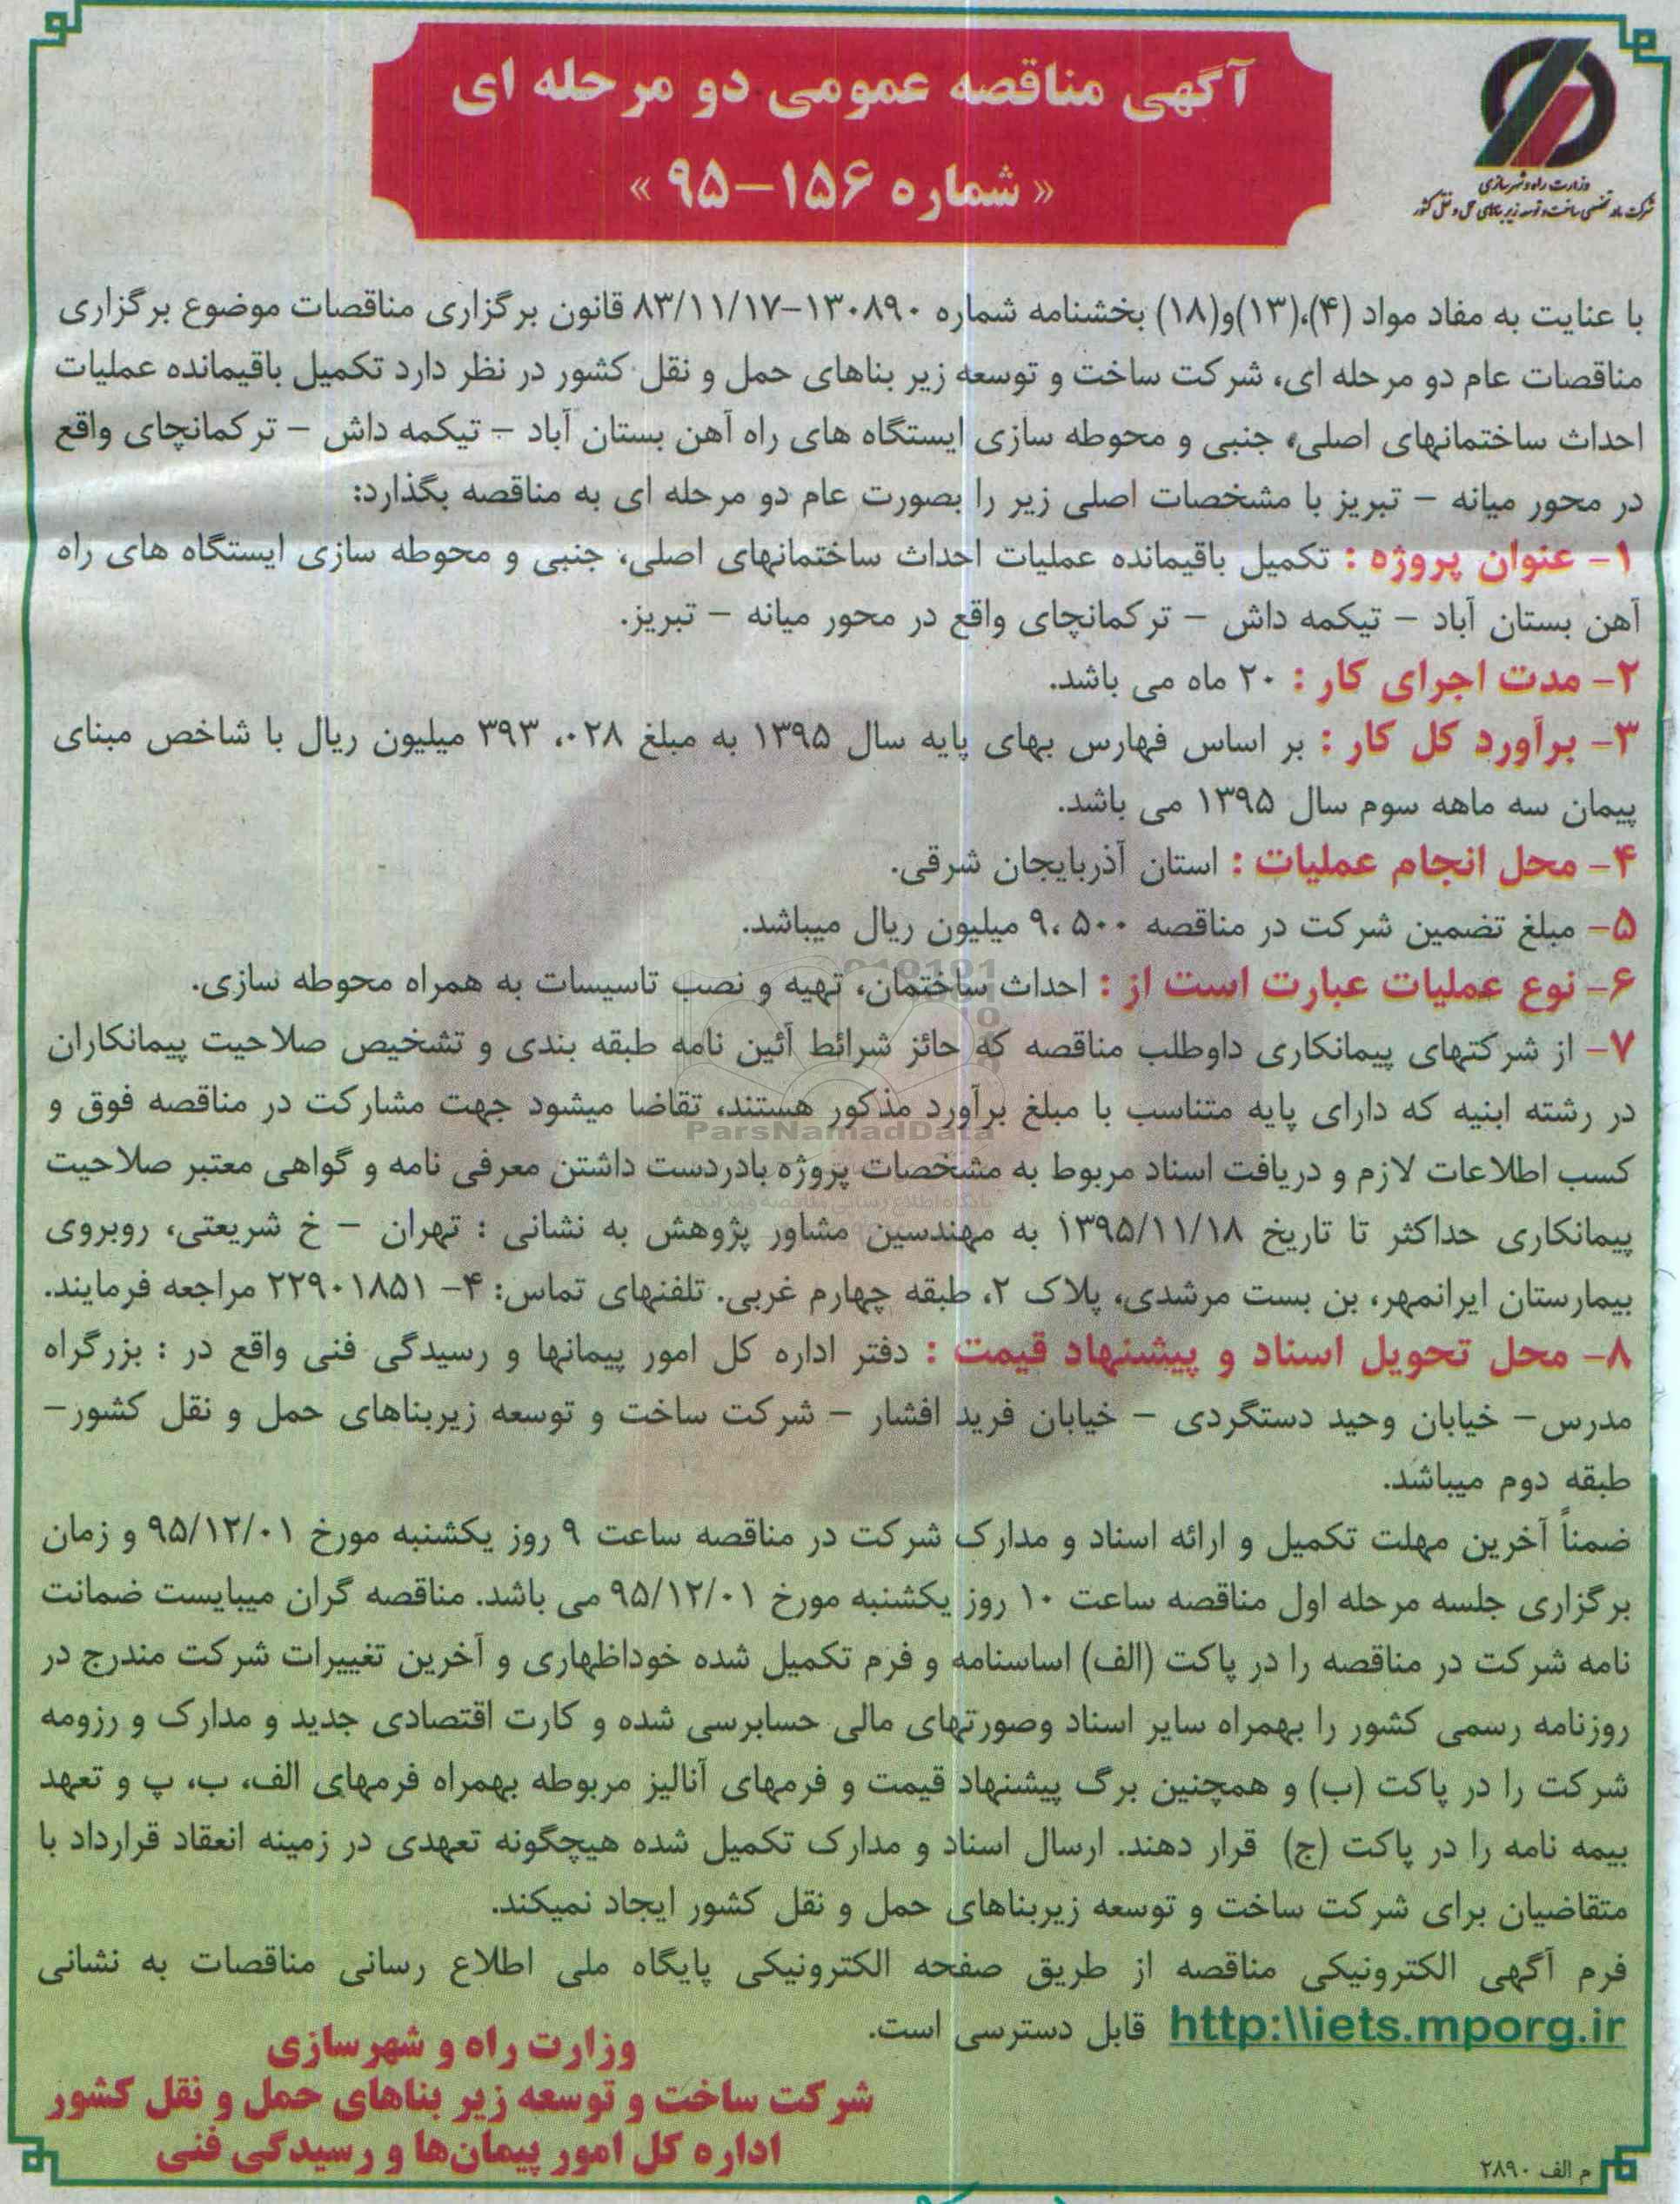 آگهی مناقصه عمومی دو مرحله ای
« شماره ۱۵۶-۹۵ »
وزارت راه و شهرسازی
شرکت مادر تخصصی ساخت و توسعه زیربناهای حمل و نقل کشور
با عنایت به مفاد مواد (۴)،(۱۳)و(۱۸) بخشنامه شماره ۱۳۰۸۹۰-۸۳/۱۱/۱۷ قانون برگزاری مناقصات موضوع برگزاری
مناقصات عام دو مرحله ای، شرکت ساخت و توسعه زیر بناهای حمل و نقل کشور در نظر دارد تکمیل باقیمانده عملیات
احداث ساختمانهای اصلی، جنبی و محوطه سازی ایستگاه های راه آهن بستان آباد – تیکمه داش – ترکمانچای واقع
در محور میانه – تبریز با مشخصات اصلی زیر را بصورت عام دو مرحله ای به مناقصه بگذارد:
۱- عنوان پروژه : تکمیل باقیمانده عملیات احداث ساختمانهای اصلی، جنبی و محوطه سازی ایستگاه های راه
آهن بستان آباد – تیکمه داش – ترکمانچای واقع در محور میانه – تبریز.
۲- مدت اجرای کار : ۲۰ ماه می باشد.
۳- برآورد کل کار : بر اساس فهارس بهای پایه سال ۱۳۹۵ به مبلغ ۰۲۸، ۳۹۳ میلیون ریال با شاخص مبنای
پیمان سه ماهه سوم سال ۱۳۹۵ می باشد.
۴- محل انجام عملیات : استان آذربایجان شرقی.
۵- مبلغ تضمین شرکت در مناقصه ۵۰۰ ،۹ میلیون ریال میباشد.
۶- نوع عملیات عبارت است از : احداث ساختمان، تهیه و نصب تاسیسات به همراه محوطه سازی.
۷- از شرکتهای پیمانکاری داوطلب مناقصه که حائز شرائط آئین نامه طبقه بندی و تشخیص صلاحیت پیمانکاران
در رشته ابنیه که دارای پایه متناسب با مبلغ برآورد مذکور هستند، تقاضا میشود جهت مشارکت در مناقصه فوق و
ParsNamadData
کسب اطلاعات لازم و دریافت اسناد مربوط به مشخصات پروژه بادردست داشتن معرفی نامه و گواهی معتبر صلاحیت
پیمانکاری حداکثر تا تاریخ ۱۳۹۵/۱۱/۱۸ به مهندسین مشاور پژوهش به نشانی : تهران – خ شریعتی، روبروی
بیمارستان ایرانمهر، بن بست مرشدی، پلاک ۲، طبقه چهارم غربی. تلفنهای تماس: ۴- ۲۲۹۰۱۸۵۱ مراجعه فرمایند.
۸- محل تحویل اسناد و پیشنهاد قیمت : دفتر اداره کل امور پیمانها و رسیدگی فنی واقع در : بزرگراه
مدرس- خیابان وحید دستگردی – خیابان فرید افشار – شرکت ساخت و توسعه زیربناهای حمل و نقل کشور-
طبقه دوم میباشد.
ضمناً آخرین مهلت تکمیل و ارائه اسناد و مدارک شرکت در مناقصه ساعت ۹ روز یکشنبه مورخ ۹۵/۱۲/۰۱ و زمان
برگزاری جلسه مرحله اول مناقصه ساعت ۱۰ روز یکشنبه مورخ ۹۵/۱۲/۰۱ می باشد. مناقصه گران میبایست ضمانت
نامه شرکت در مناقصه را در پاکت (الف) اساسنامه و فرم تکمیل شده خوداظهاری و آخرین تغییرات شرکت مندرج در
روزنامه رسمی کشور را بهمراه سایر اسناد وصورتهای مالی حسابرسی شده و کارت اقتصادی جدید و مدارک و رزومه
شرکت را در پاکت (ب) و همچنین برگ پیشنهاد قیمت و فرمهای آنالیز مربوطه بهمراه فرمهای الف، ب، پ و تعهد
بیمه نامه را در پاکت (ج) قرار دهند. ارسال اسناد و مدارک تکمیل شده هیچگونه تعهدی در زمینه انعقاد قرارداد با
متقاضیان برای شرکت ساخت و توسعه زیربناهای حمل و نقل کشور ایجاد نمیکند.
فرم آگهی الکترونیکی مناقصه از طریق صفحه الکترونیکی پایگاه ملی اطلاع رسانی مناقصات به نشانی
http:\\iets.mporg.ir قابل دسترسی است.
وزارت راه و شهرسازی
شرکت ساخت و توسعه زیر بناهای حمل و نقل کشور
اداره کل امور پیمان‌ها و رسیدگی فنی
م الف ۲۸۹۰